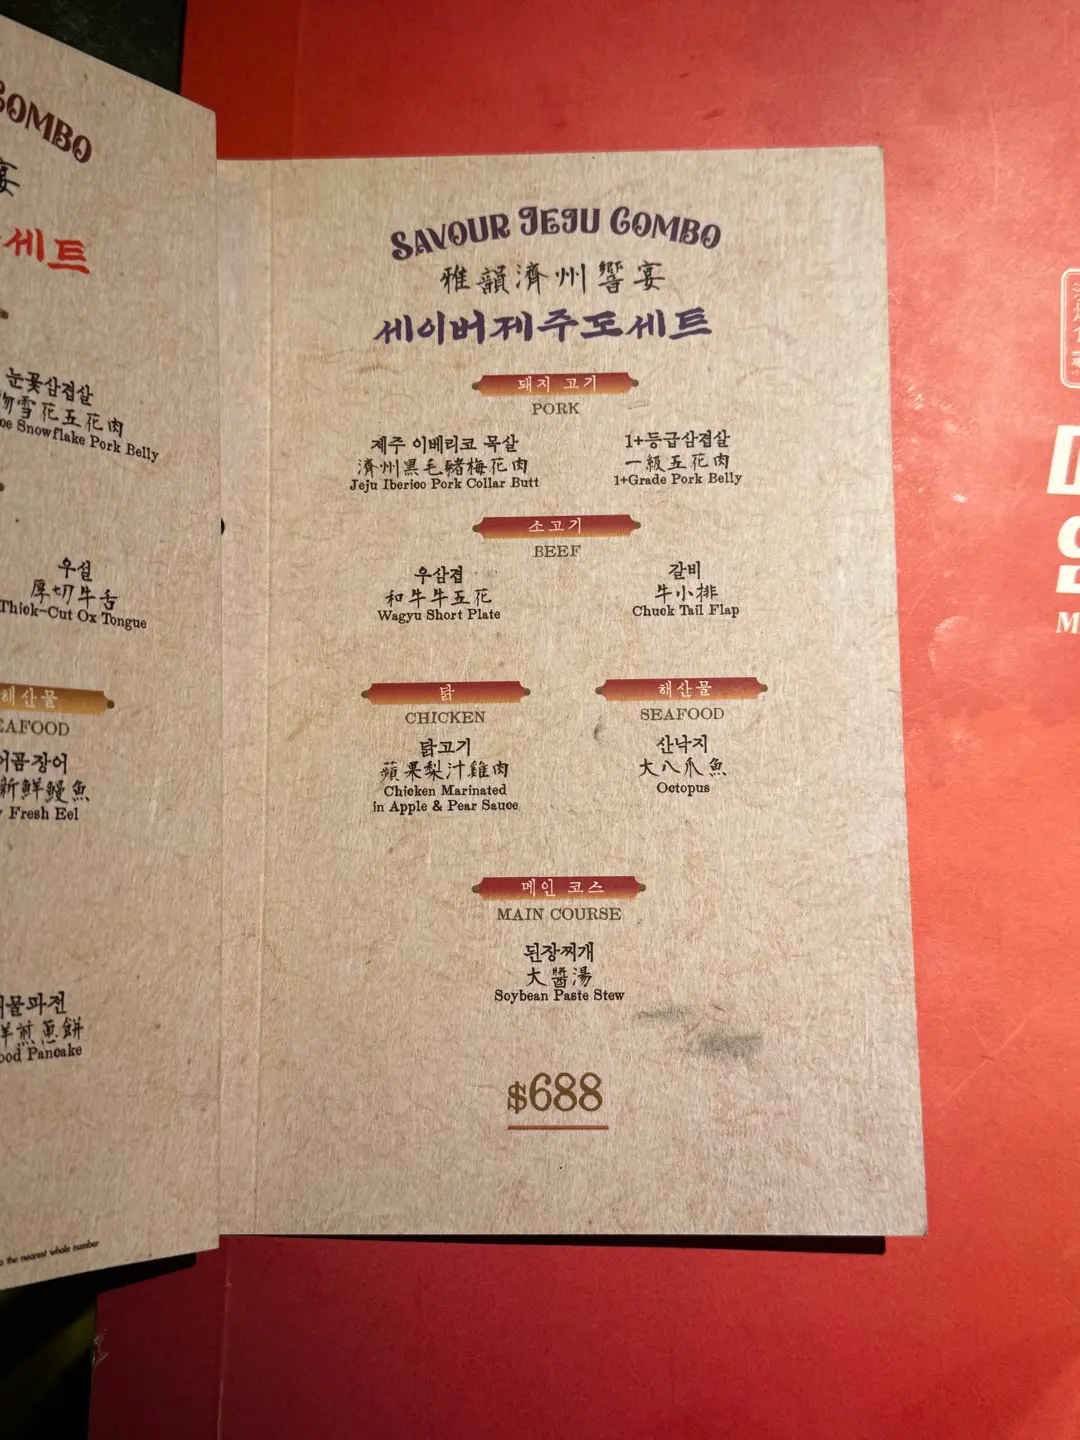 COMBO
宴
세트
눈꽃삼겹살
物雪花五花肉
Snowflake Pork Belly
우설
厚切牛舌
Thick-Cut Ox Tongue
해산물
SEAFOOD
곰장어
新鮮鰻魚
Fresh Eel
물파전
煎蔥餅
Pancake
the nearest whole number
SAVOUR JEJU COMBO
雅韻濟州響宴
세이버제주도세트
돼지 고기
PORK
제주 이베리코 목살
濟州黑毛豬梅花肉
Jeju Iberico Pork Collar Butt
1+등급삼겹살
一級五花肉
1+Grade Pork Belly
소고기
BEEF
우삼겹
和牛牛五花
Wagyu Short Plate
갈비
牛小排
Chuck Tail Flap
닭
CHICKEN
닭고기
蘋果梨汁雞肉
Chicken Marinated
in Apple & Pear Sauce
해산물
SEAFOOD
산낙지
大八爪魚
Octopus
메인 코스
MAIN COURSE
된장찌개
大醬湯
Soybean Paste Stew
$688